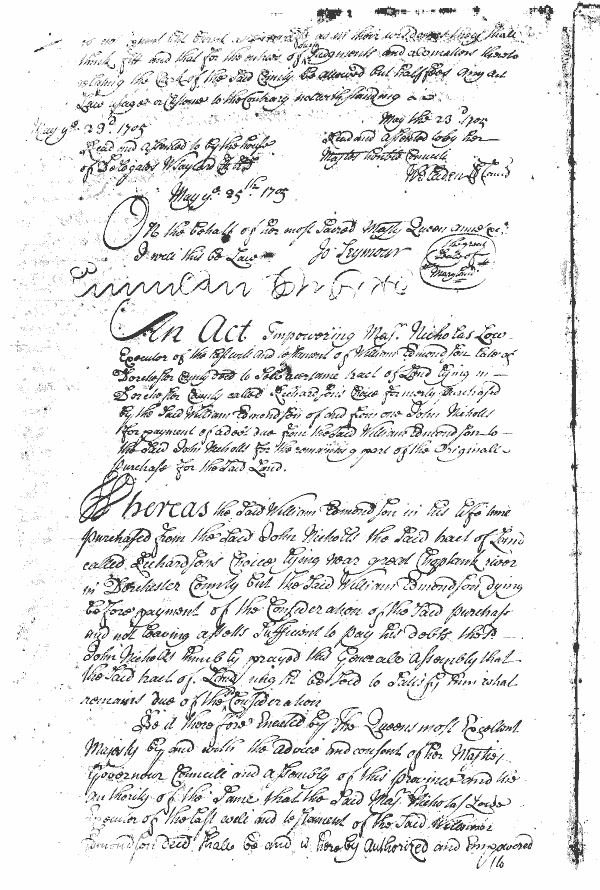 as in their wild shall
think fitt and that for the entries of Judgments and a thereto
relating the Clerk of the Said County be allowed but half fees any act
Law usage or Custome to the Contrary notwithstanding
May ye. 23d. 1705
Read and assented to by the house
of Delegates W Taylard
May the 23d 1705
Read and assented to by her
Majtys honble Councill
W Bladen Cl Council
May ye. 25th 1705
On the behalf of her most Sacred Majty Queen Anne &c.
I will this be Law
Jo Seymour
The great
Seale of
Maryland
An Act Impowering Majr. Nicholas Low
Executor of the last will and testament of William Edmondson late of
Dorchester County decd to Sell a certaine tract of Land lying in
Dorchester County called Richardsons Choice formerly purchased
by the Said William Edmondson of and from one John Nicholls
for payment of a debt due from the Said William Edmondson to
the Said John Nicholls for the remaining part of the Originall
purchase for the Said Land.
Whereas the Said William Edmondson in his life time
purchased from the Said John Nicholls the Said tract of Land
called Richardsons Choice lying near great Choptank river
in Dorchester County but the Said William Edmondson dying
before payment of the Consideration of the Said purchase
and not leaving assetts Sufficient to pay his debts the Sd
John Nicholls humbly prayed this Generall Assembly that
the Said tract of Land might be Sold to Satisfy him what
remains due of the Consideration
Be it therefore Enacted by the Queens most Excellent
Majesty by and with the advice and consent of her Majtys
Governour Councill and assembly of this province and the
authority of the Same that the Said Majr. Nicholas Lowe
Executor of the last will and testament of the Said William
Edmondson decd. shall be and is hereby authorized and Empowered